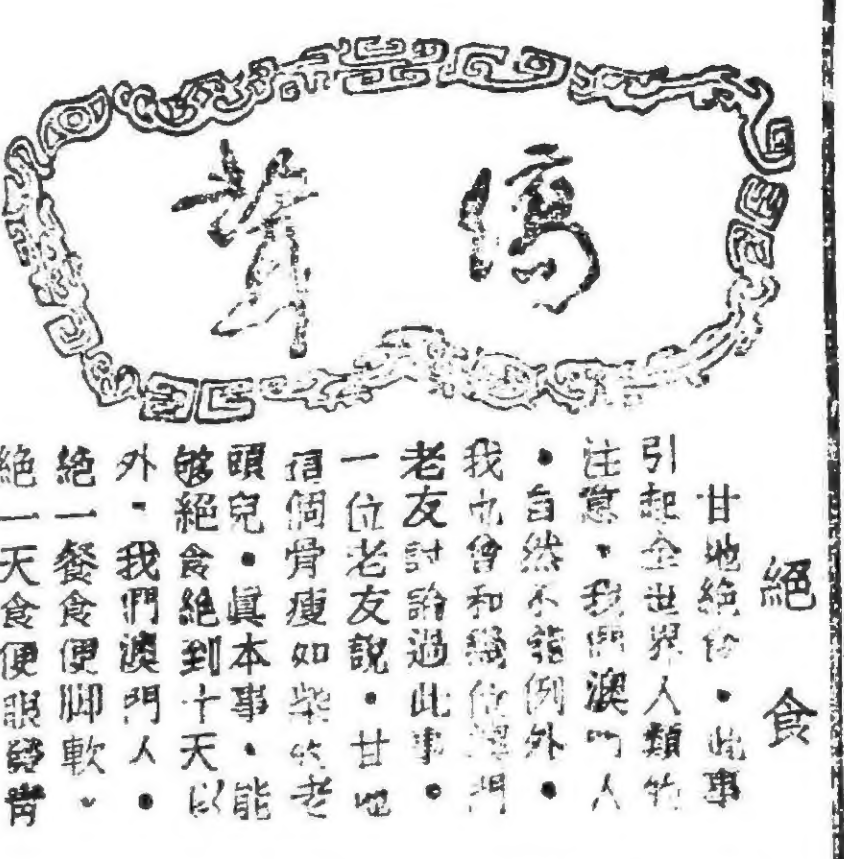 僑聲
絕食
甘地絕食・此事
引起全世界人類的
注意・我們澳門人
・自然不能例外・
我也曾和幾位澳門
老友討論過此事・
一位老友說・甘地
這個骨瘦如柴的老
頭兒・眞本事・能
够絕食絕到十天以
外・我們澳門人・
絕一餐食便脚軟・
絕一天食便眼發青